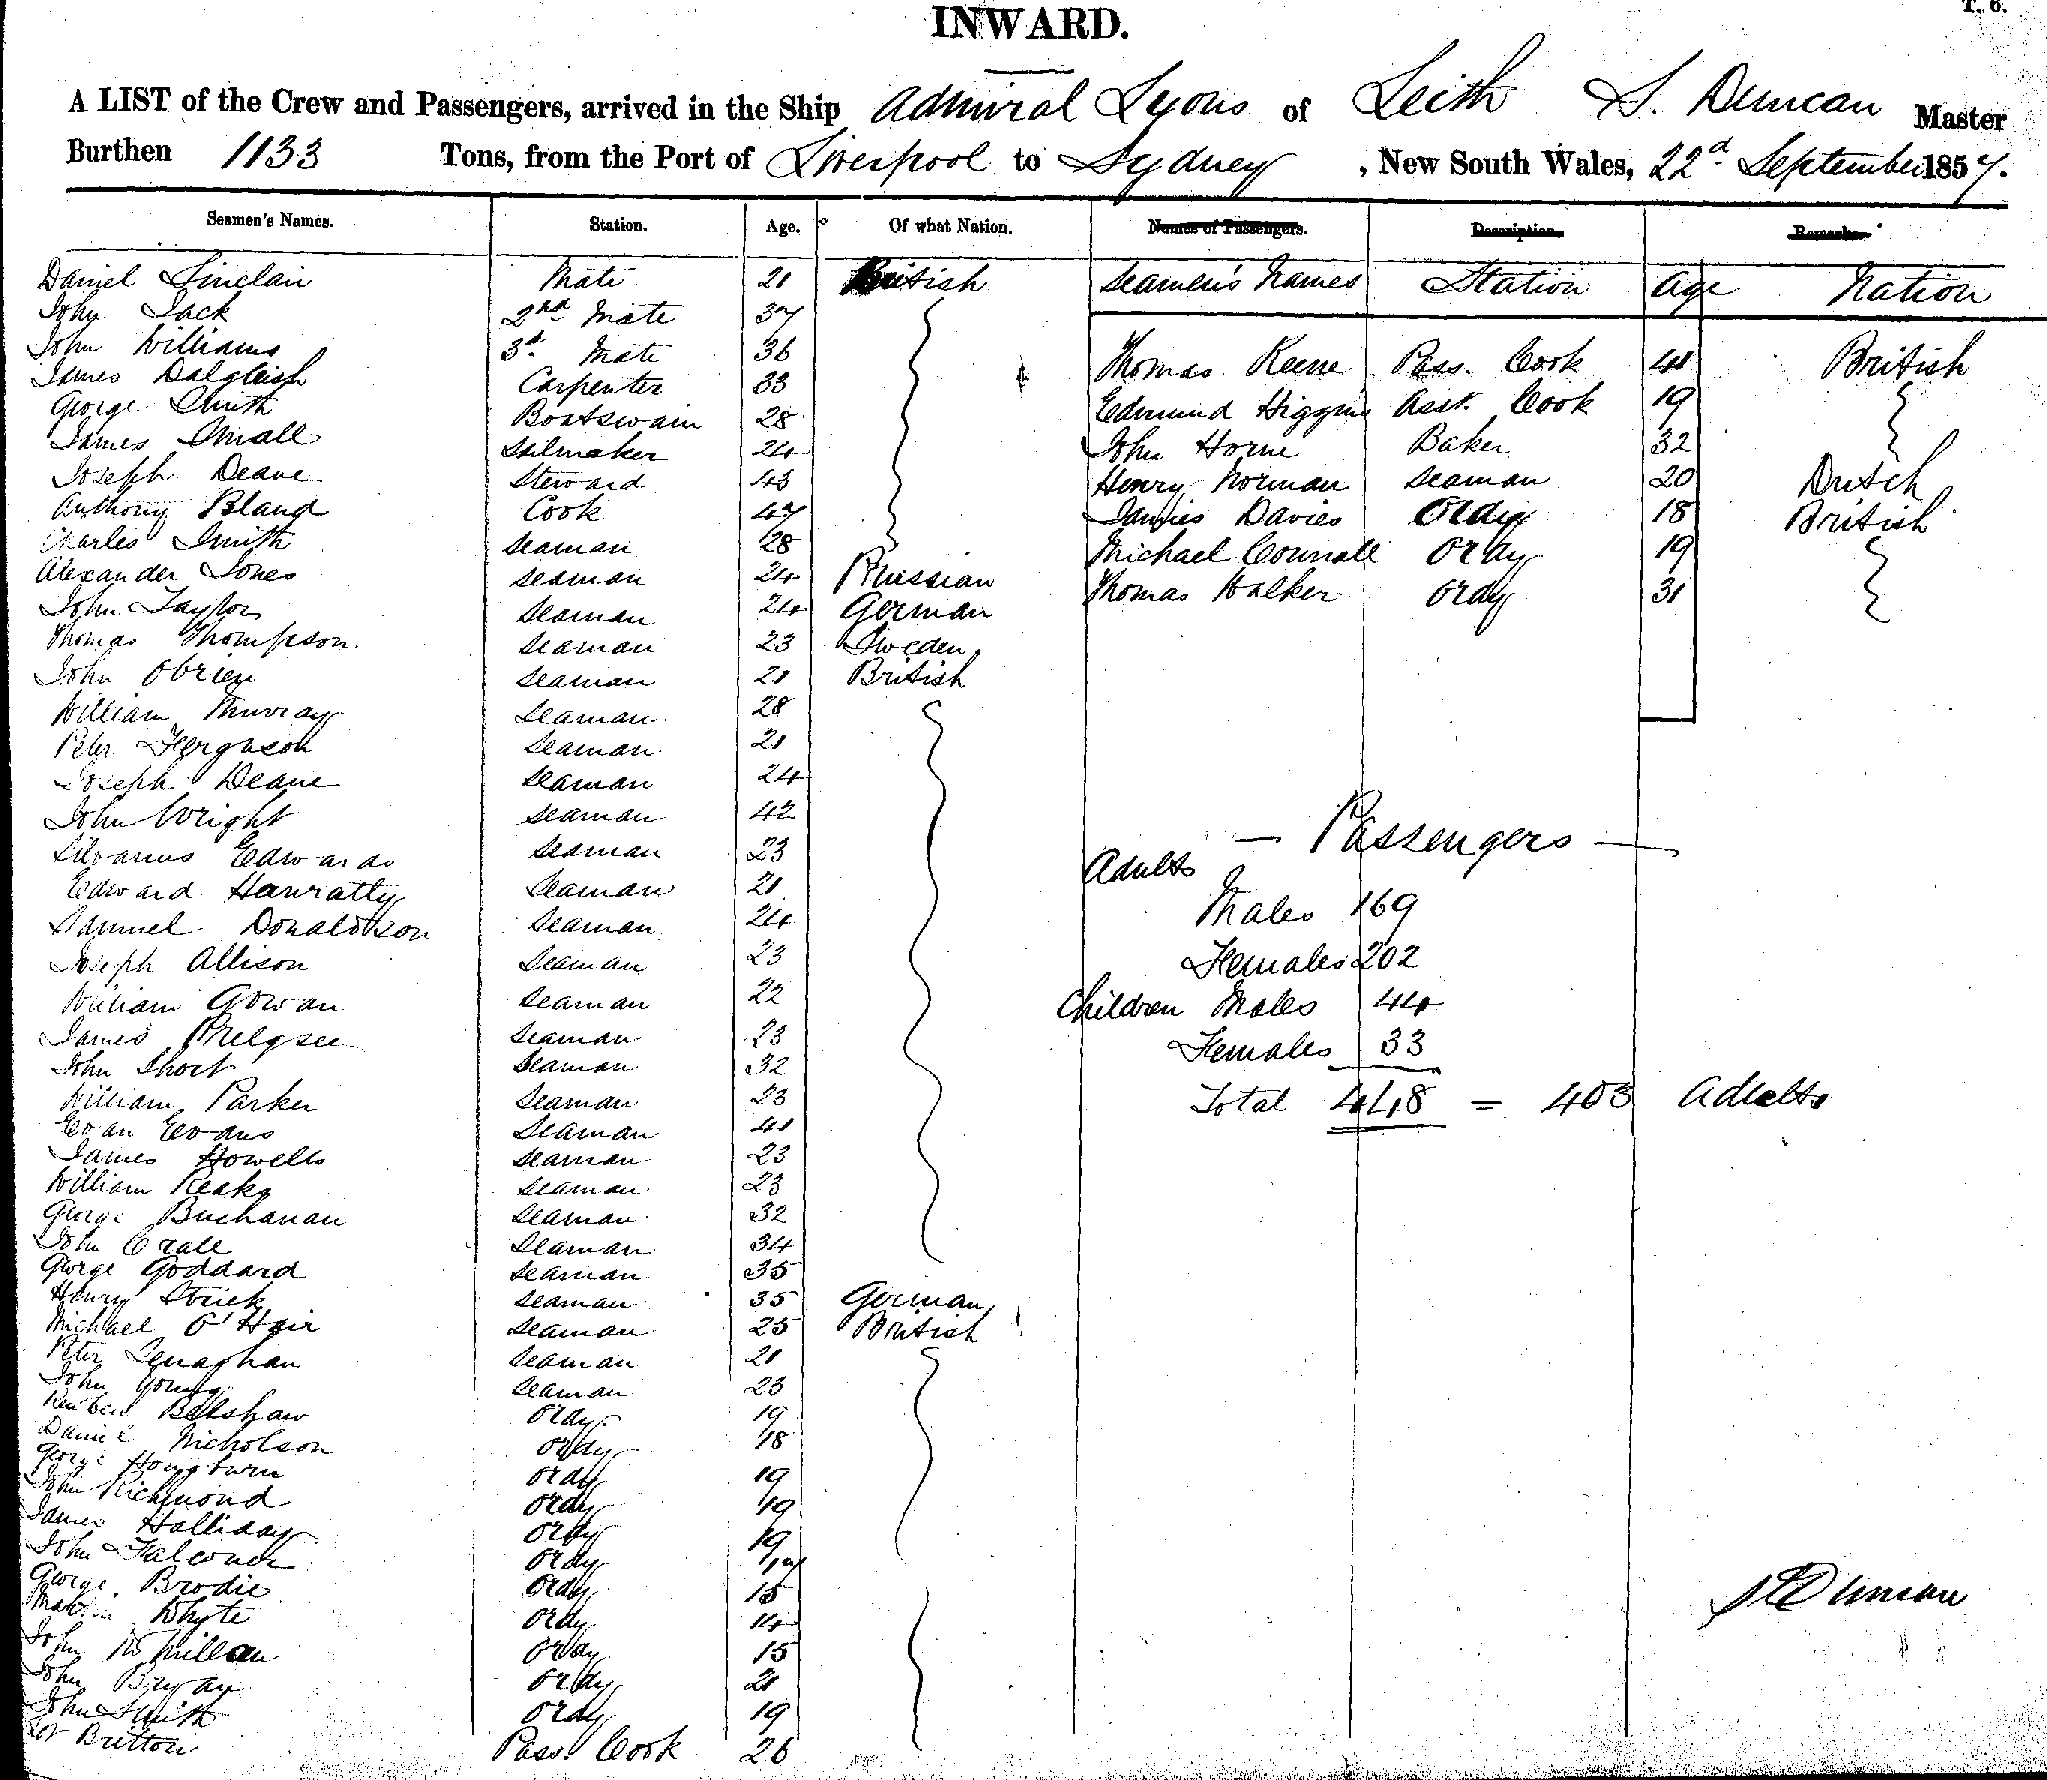 T. 6.
INWARD.
A LIST of the Crew and Passengers, arrived in the Ship Admiral Lyons of Leith S. Duncan Master
Burthen 1133 Tons, from the Port of Liverpool to Sydney, New South Wales, 22d September 1857.
Seamen's Names. Station. Age. Of what Nation.
Daniel Sinclair Mate 21 British
John Jack 2nd Mate 37
John Williams 3d. Mate 36
James Dalgleish Carpenter 33
George Smith Boatswain 28
James Small Sailmaker 24
Joseph Deane Steward 43
Anthony Bland Cook 47
Charles Smith Seaman 28
Alexander Jones Seaman 24 Russian
John Taylor Seaman 24 German
Thomas Thompson Seaman 23 Sweden
John Obrien Seaman 21 British
William Murray Seaman 28
Peter Ferguson Seaman 21
Joseph Deane Seaman 24
John Wright Seaman 42
Silvanus Edwards Seaman 23
Edward Hanratty Seaman 21
Samuel Donaldson Seaman 24
Joseph Allison Seaman 23
William Gowan Seaman 22
James Seaman 23
John Short Seaman 32
William Parker Seaman 23
Evan Evans Seaman 41
James Howells Seaman 23
William Seaman 23
George Buchanan Seaman 32
John Crall Seaman 34
George Goddard Seaman 35
Henry Seaman 35 German
Michael O'Hair Seaman 25 British
Peter Lenaghan Seaman 21
John Young Seaman 23
Belshaw Ordy 19
Daniel Nicholson Ordy 18
George Ordy 19
John Richmond Ordy 19
James Halliday Ordy 19
John Falconer Ordy 17
George Brodie Ordy 15
Whyte Ordy 14
John McMillan Ordy 15
John Bryan Ordy 21
John Smith Ordy 19
Britton Pass. Cook 26
Names of Passengers. Description. Remarks.
Seamen's Names Station Age Nation
Thomas Keene Pass. Cook 41 British
Edmund Higgins Asst. Cook 19
John Horne Baker 32
Henry Norman Seaman 20 Dutch
James Davies Ordy 18 British
Michael Connall Ordy 19
Thomas Walker Ordy 31
— Passengers —
Adults
Males 169
Females 202
Children Males 44
Females 33
Total 448 = 408 Adults
S Duncan